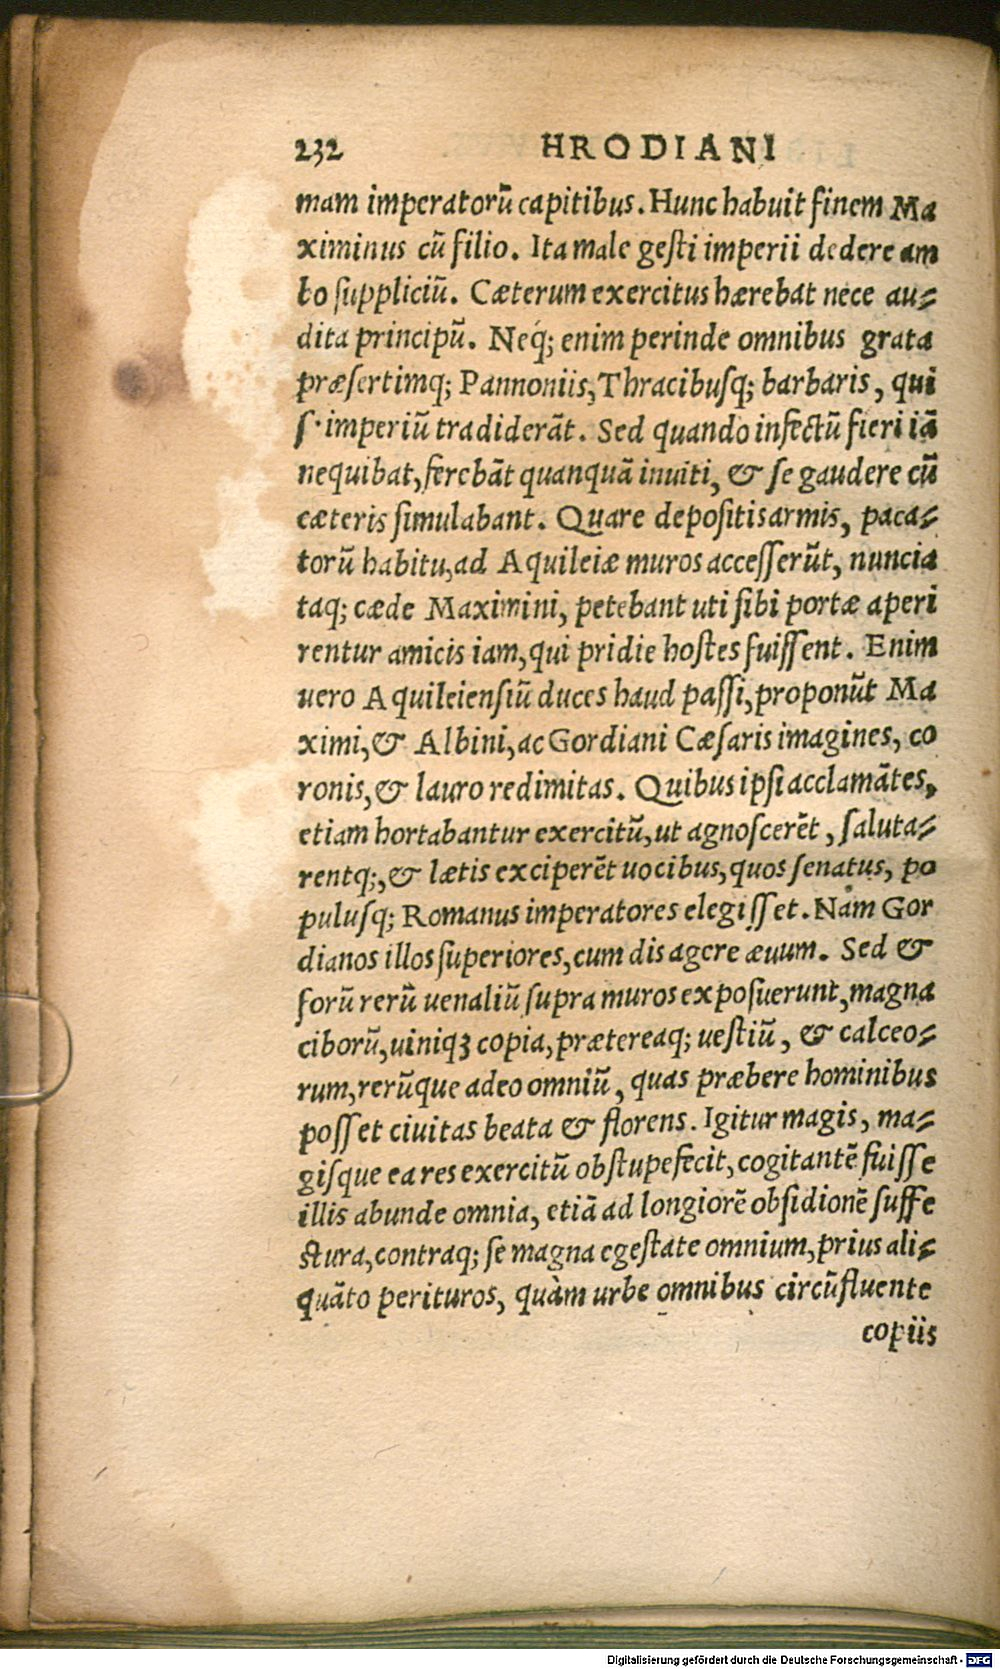 232 HRODIANI
mam imperatorū capitibus. Hunc habuit finem Ma
ximinus cū filio. Ita male gesti imperii dedere am
bo suppliciū. Cæterum exercitus hærebat nece au⸗
dita principū. Neq; enim perinde omnibus grata
præsertimq; Pannoniis, Thracibusq; barbaris, qui
s· imperiū tradiderāt. Sed quando infectū fieri iā
nequibat, ferebāt quanquā inuiti, & se gaudere cū
cæteris simulabant. Quare depositis armis, paca⸗
torū habitu, ad Aquileiæ muros accesserūt, nuncia
taq; cæde Maximini, petebant uti sibi portæ aperi
rentur amicis iam, qui pridie hostes fuissent. Enim
uero Aquileiensiū duces haud passi, proponūt Ma
ximi, & Albini, ac Gordiani Cæsaris imagines, co
ronis, & lauro redimitas. Quibus ipsi acclamātes,
etiam hortabantur exercitū, ut agnoscerēt, saluta⸗
rentq;, & lætis exciperēt uocibus, quos senatus, po
pulusq; Romanus imperatores elegisset. Nam Gor
dianos illos superiores, cum dis agere æuum. Sed &
forū rerū uenaliū supra muros exposuerunt, magna
ciborū, uiniqꝫ copia, prætereaq; uestiū, & calceo⸗
rum, rerūque adeo omniū, quas præbere hominibus
posset ciuitas beata & florens. Igitur magis, ma⸗
gisque ea res exercitū obstupefecit, cogitantē fuisse
illis abunde omnia, etiā ad longiorē obsidionē suffe
ctura, contraq; se magna egestate omnium, prius ali⸗
quāto perituros, quàm urbe omnibus circūfluente
copiis
Digitalisierung gefördert durch die Deutsche Forschungsgemeinschaft - DFG